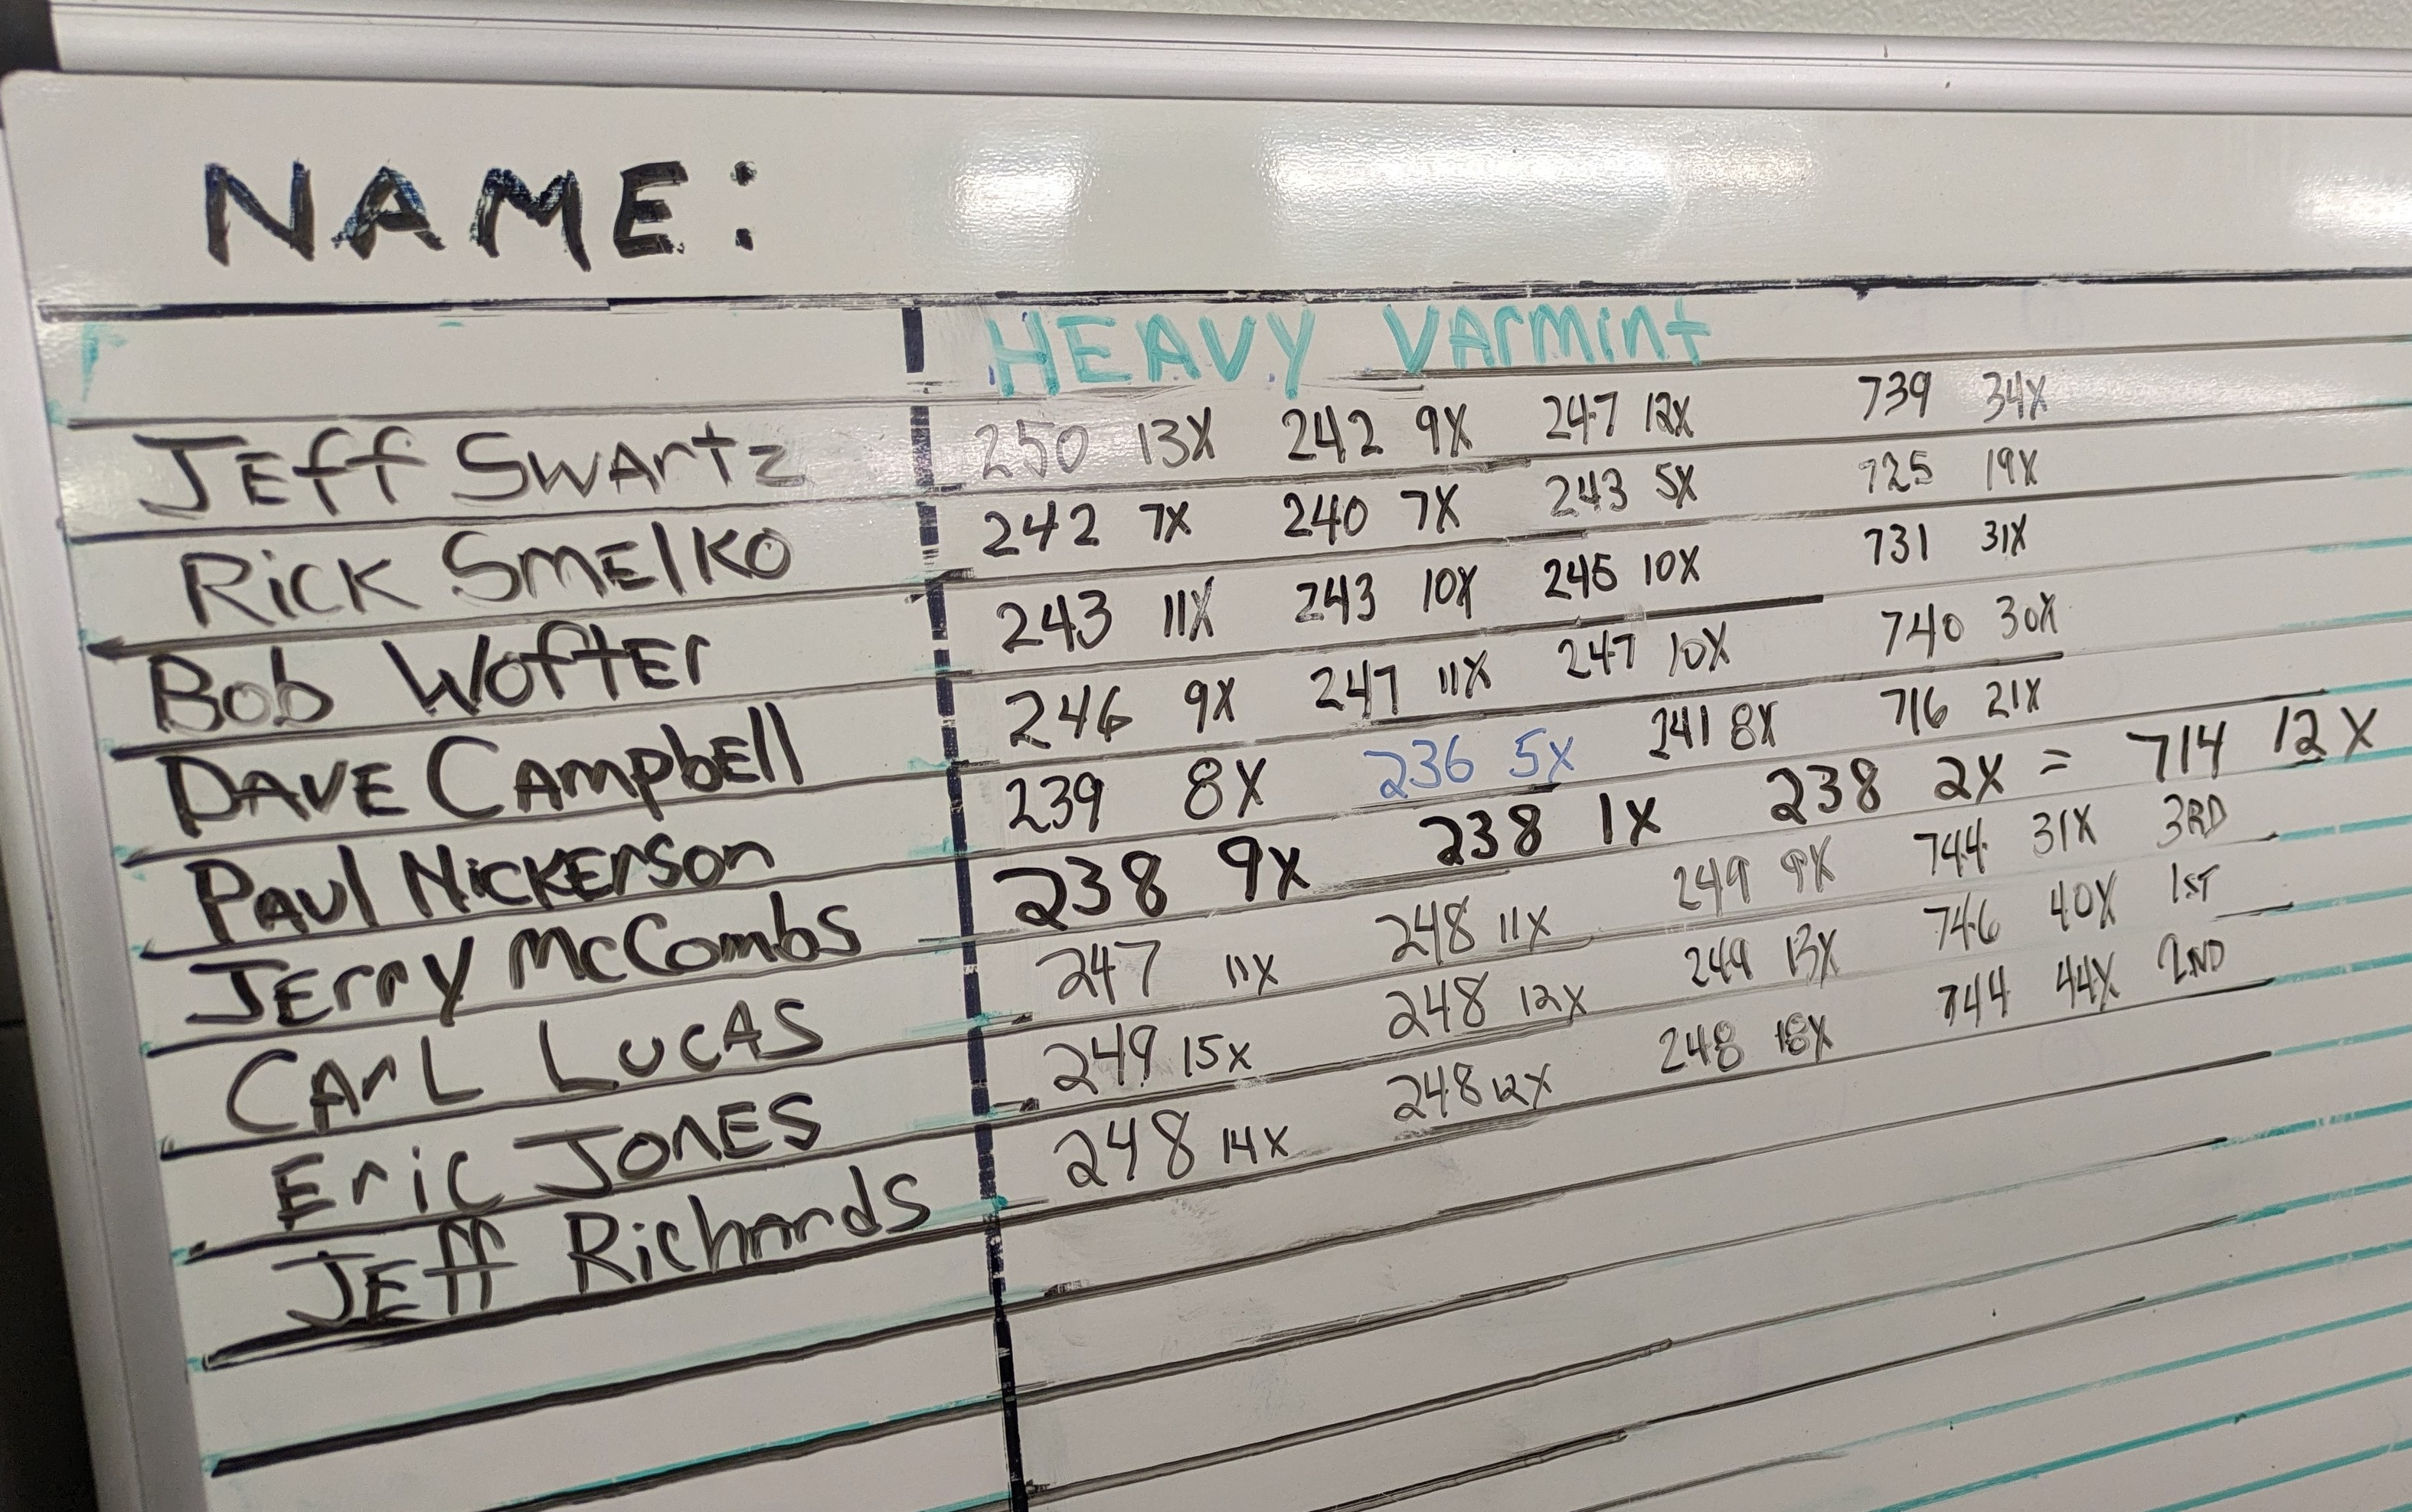 NAME:
HEAVY VArmint
JEff SwArtz 250 13X 242 9X 247 12X 739 34X
Rick SmElKo 242 7X 240 7X 243 5X 725 19X
Bob WoftEr 243 11X 243 10X 245 10X 731 31X
DAVE CAmpbEll 246 9X 247 11X 247 10X 740 30X
PAul NickErson 239 8X 236 5X 241 8X 716 21X
JErry McCombs 238 9X 238 1X 238 2X = 714 12X
CArL LucAS 247 11X 248 11X 249 9X 744 31X 3RD
Eric JonES 249 15X 248 12X 249 13X 746 40X 1ST
JEff RichArds 248 14X 248 12X 248 18X 744 44X 2ND